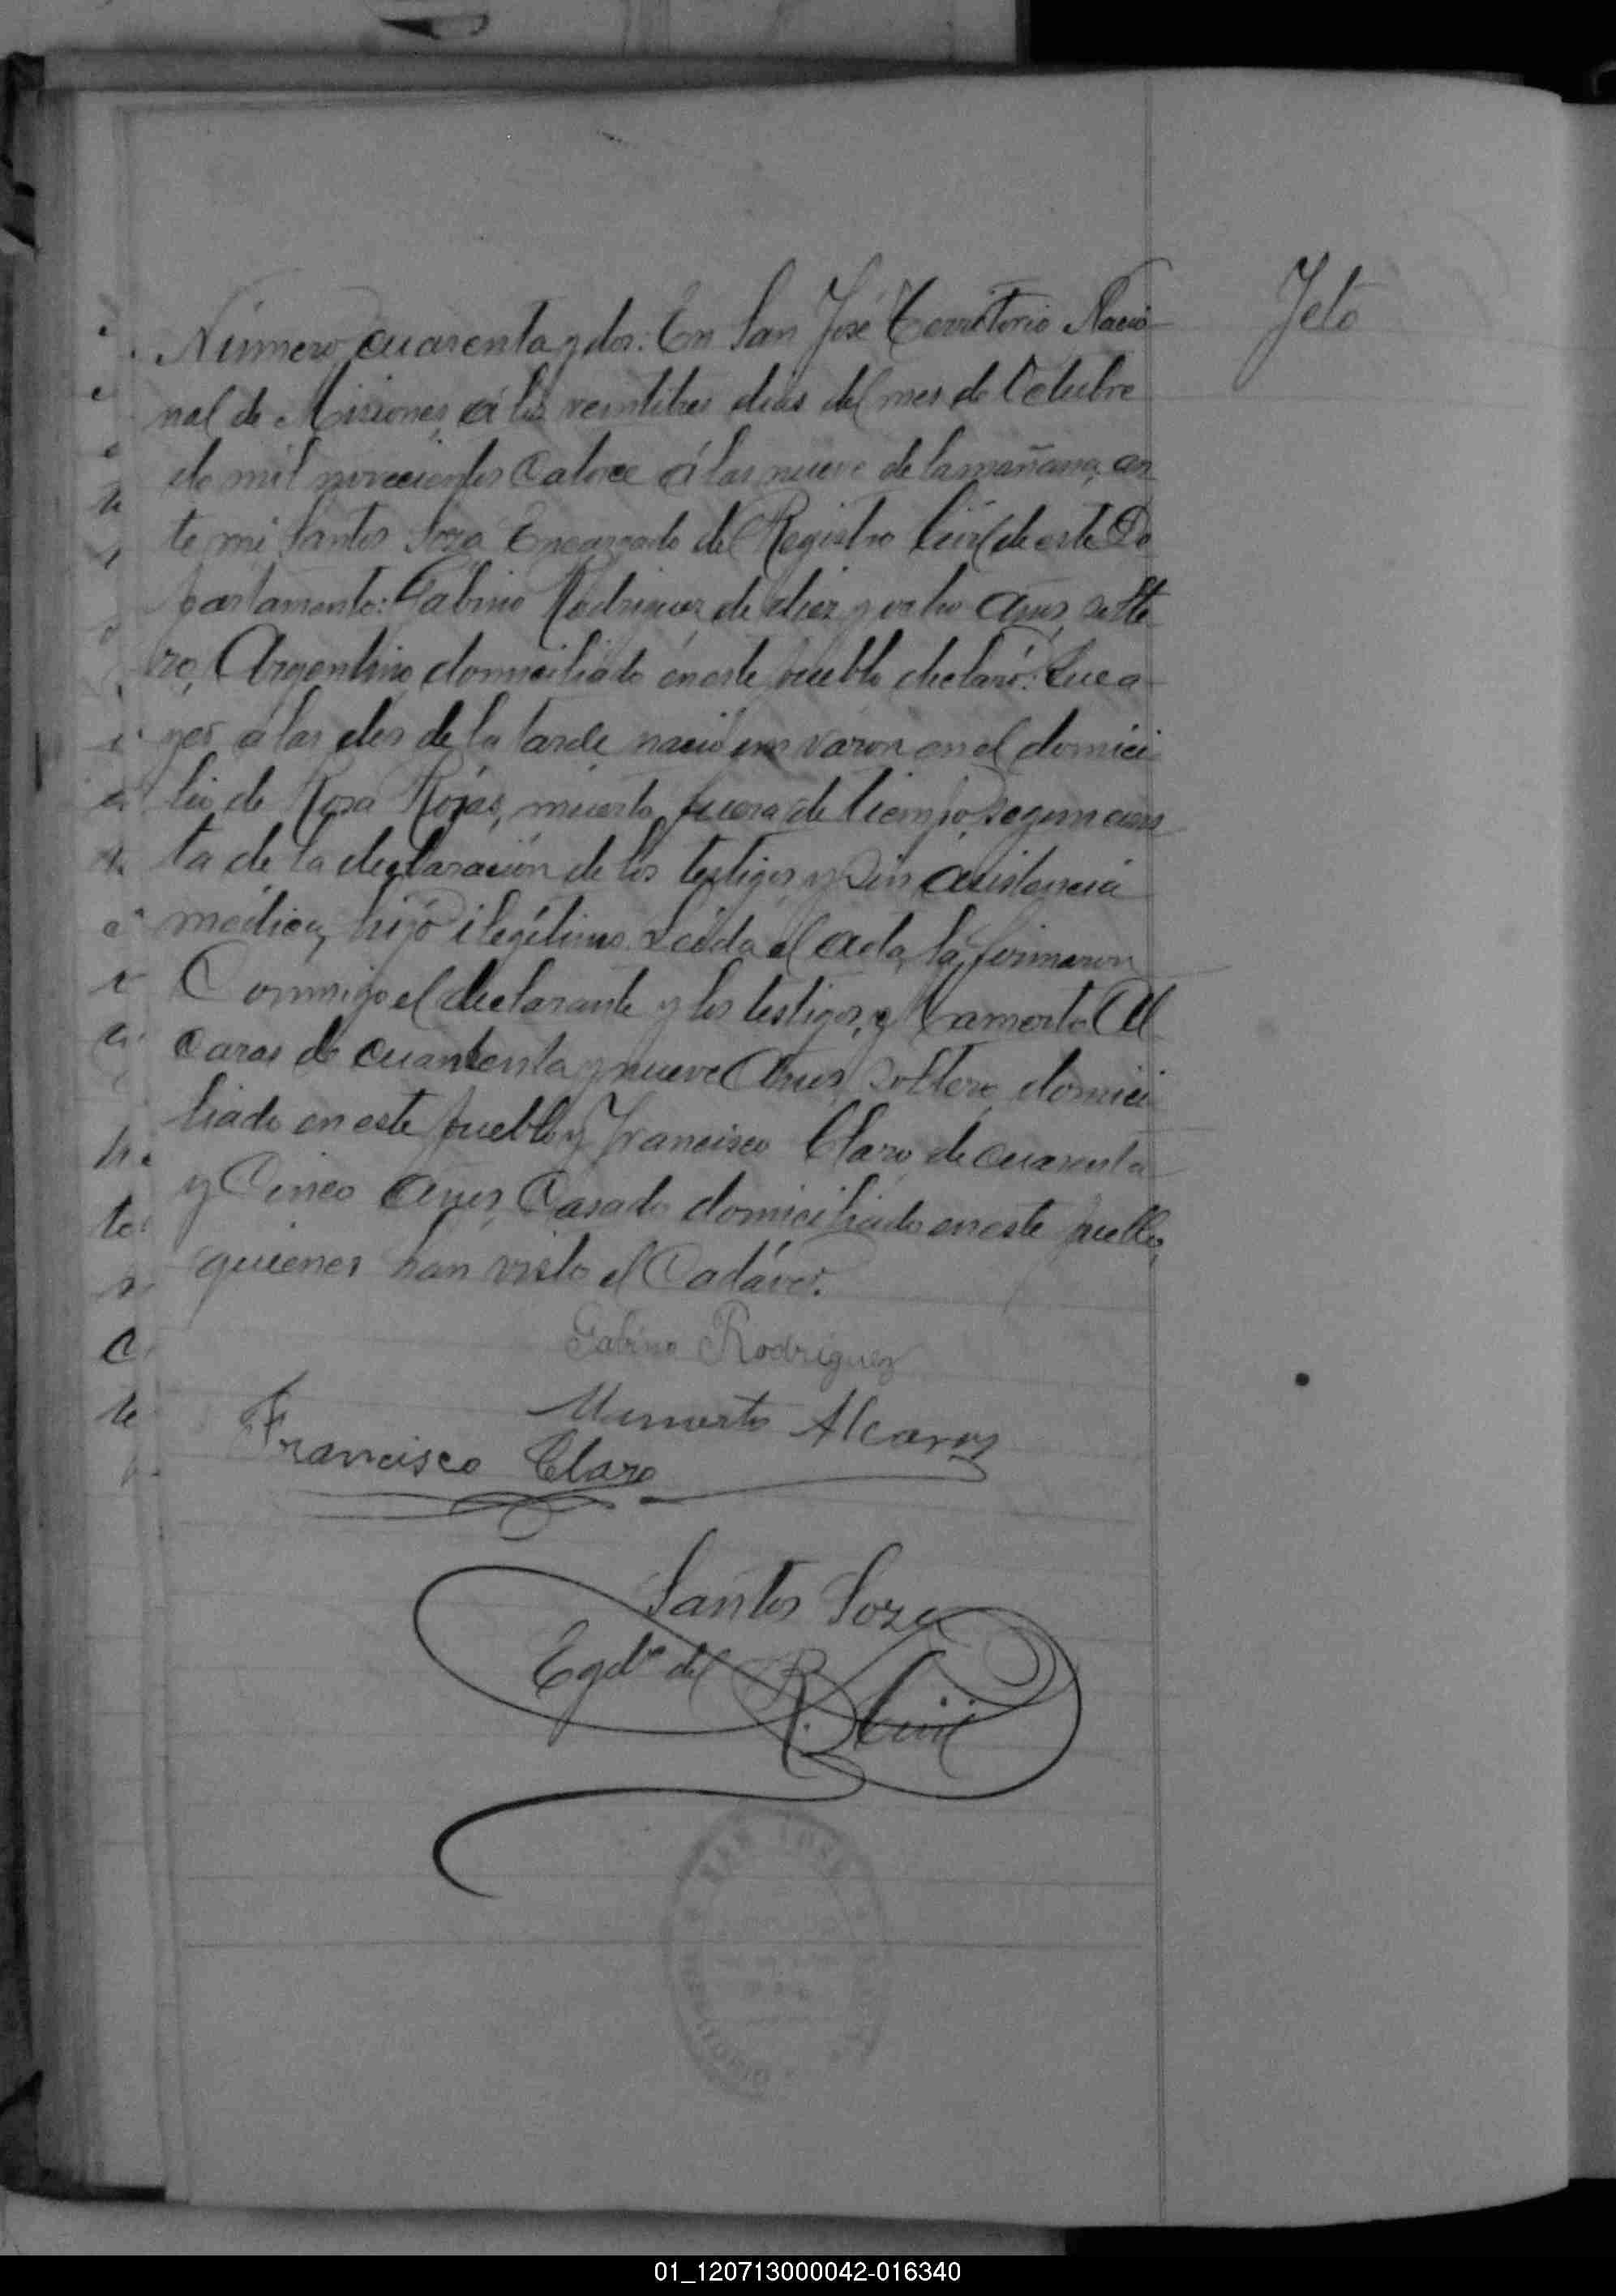 Jeto
Número cuarenta y dos: En San José Territorio Nacio
nal de Misiones, á los veintitres dias del mes de Octubre
de mil novecientos Catorce á las nueve de la mañana, an
te mi Santos Soza Encargado del Registro Civil de este De
partamento: Gabino Rodriguez de diez y ocho años, solte
ro, Argentino domiciliado en este pueblo declaró: Que a
yer a las dos de la tarde nació un varon en el domici
lio de Rosa Rojas, muerto fuera de tiempo, segun cons
ta de la declaración de los testigos y sin asistencia
médica, hijo ilegítimo. Leida el acta, la firmaron
Conmigo el declarante y los testigos, Mamerto Al
caras de cuarenta y nueve años, soltero, domici
liado en este pueblo y Francisco Claro de cuarenta
y Cinco años, Casado domiciliado en este pueblo,
quienes han visto el Cadáver.
Gabino Rodriguez
Mamerto Alcaras
Francisco Claro
Santos Soza
Egdo del R. Civil
SAN JOSE
01_120713000042-016340